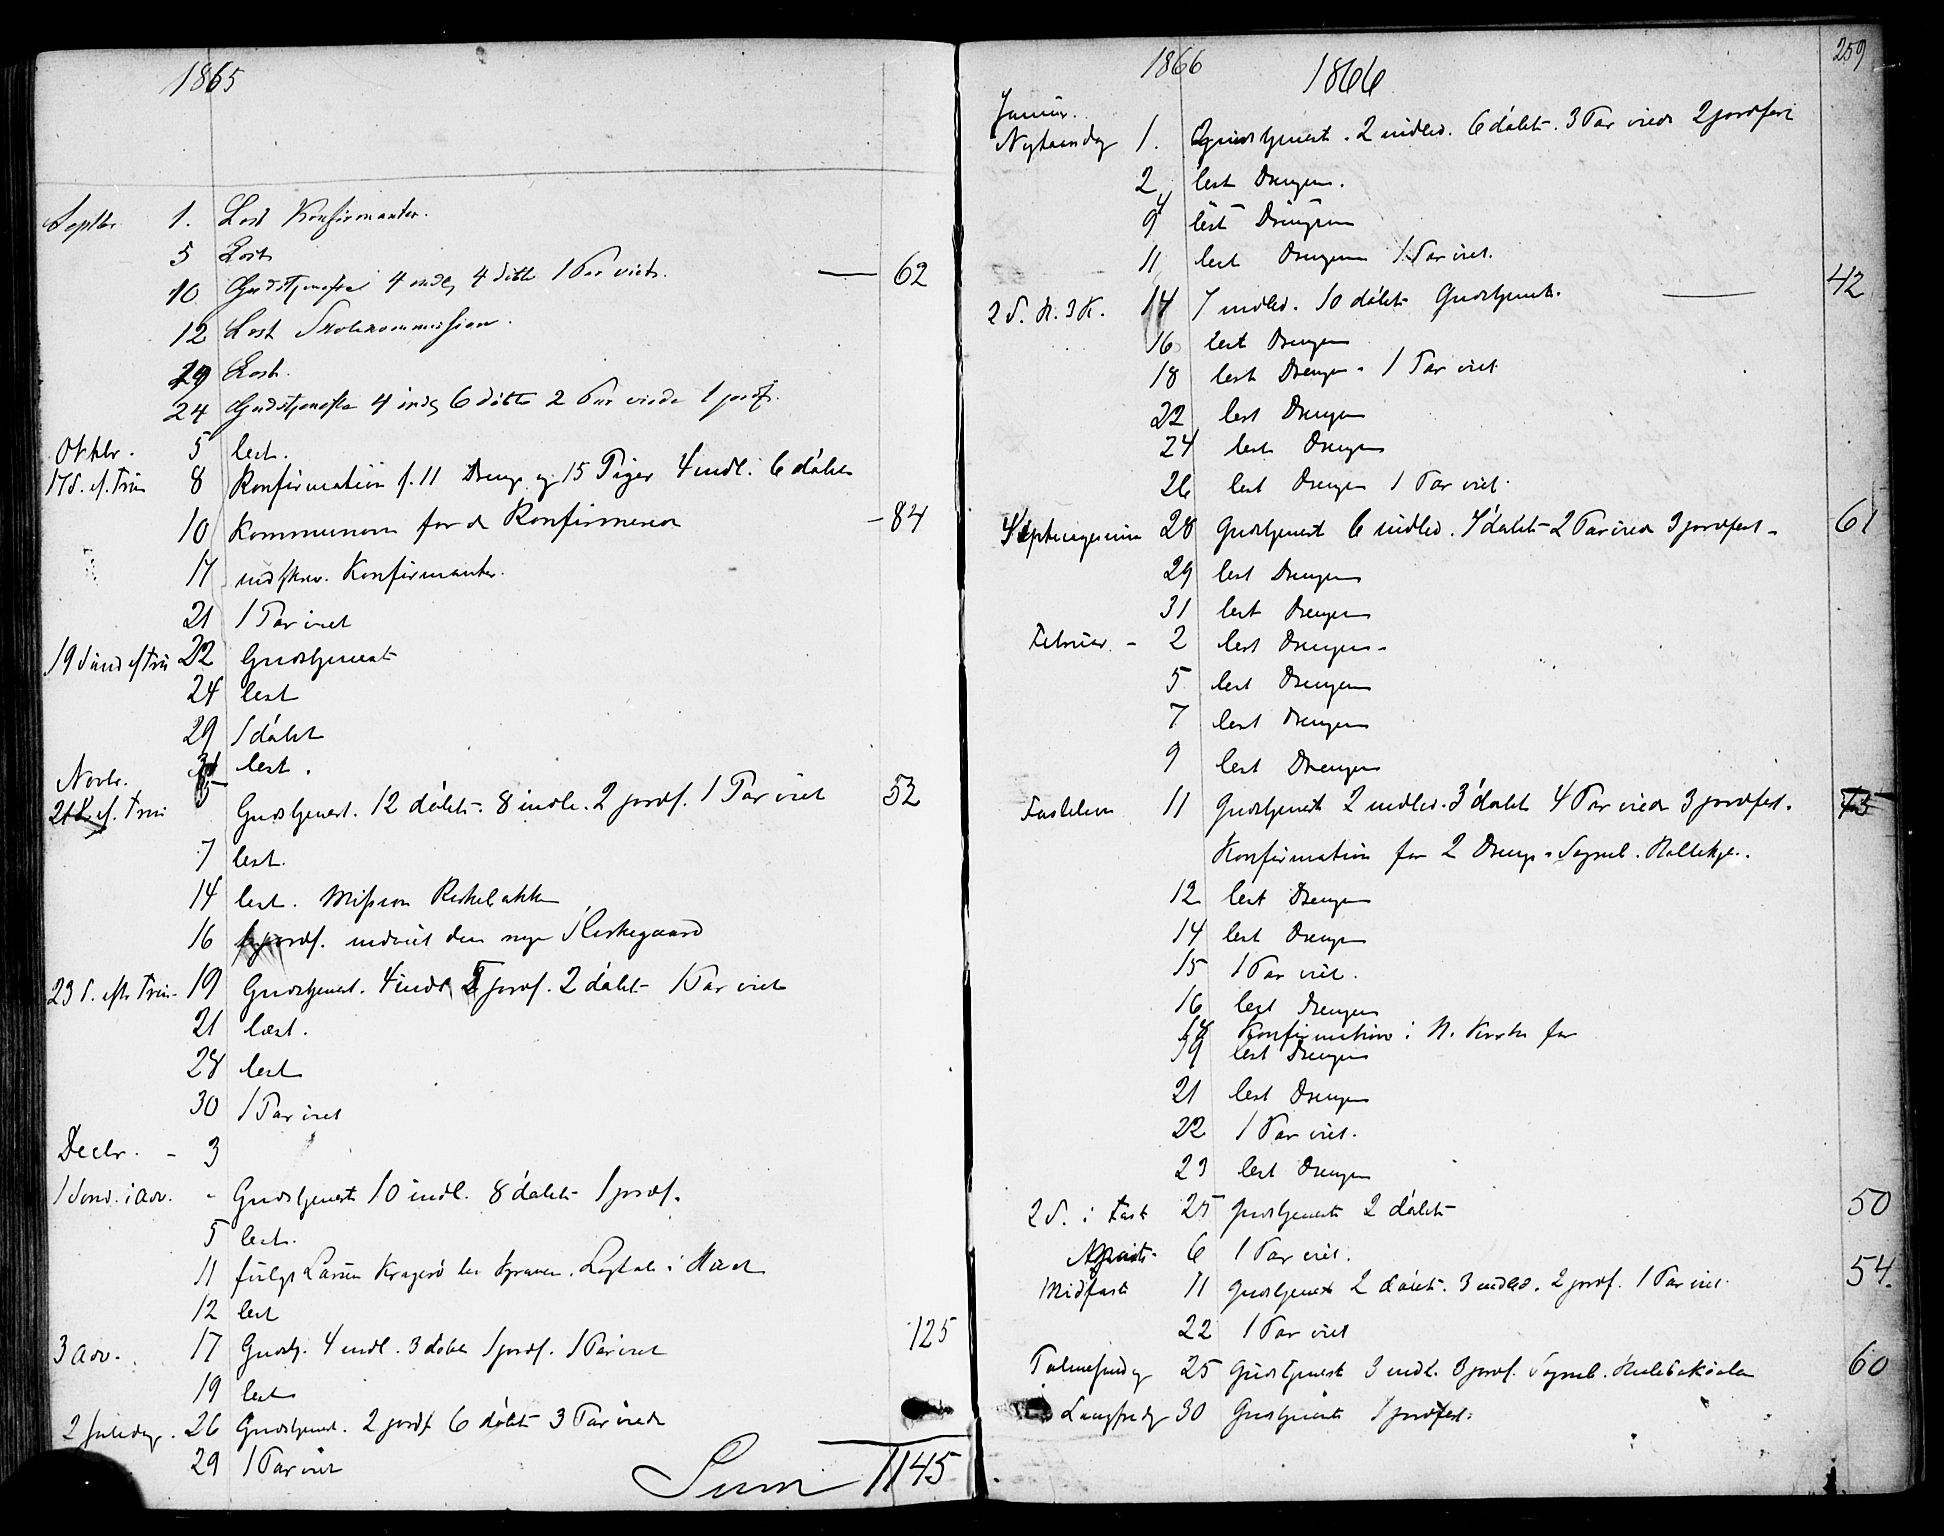 1865
Septbr. 1. Læst Konfirmanter.
5 Læst
10 Gudstjeneste 4 indl, 4 døbte 1 Par viet. — 62
12 Læst Skolekommission.
19 Læst.
24 Gudstjeneste 4 indl, 6 døbte 2 Par viede 1 jordf.
Oktbr. 5 læst.
17 S. ef. Trin 8 Konfirmation f. 11 Drenge og 15 Piger 4 indl. 6 døbte
10 Kommunion for de Konfirmerede – 84
17 indskrev. Konfirmanter.
21 1 Par viet
19 Sønd ef Trin 22 Gudstjeneste
24 læst
29 1 døbt
31 læst.
Novbr.
21 S. ef. Trin 5 Gudstjenest. 12 døbte. 8 indl. 2 jordf. 1 Par viet 52
7 læst.
14 læst. Mission
16 jordf. indviet den nye Kirkegaard
23 S. eft. Trin. 19 Gudstjenest. 4 indl jordf. 2 døbt 1 Par viet
21 læst.
28 læst
30 1 Par viet
Decbr. – 3
1 Sønd. i Adv. " Gudstjeneste 10 indl. 8 døbte 1 jordf.
5 læst.
11 fulgt Larsen Kragerø til Graven. i
12 læst
3 Adv. 17 Gudstj. 4 indl. 3 døbte 1 jordf. 1 Par viet 125
19 læst
2 Juledag. 26 Gudstjenest. 2 jordf 6 døbt 3 Par viede
29 1 Par viet
Sum 1145
259
1866 1866
Januar.
Nytaarsdag 1. Gudstjenest. 2 indled. 6 døbt. 3 Par viede 2 jordfest
2 læst Drengen.
9 læst Drengen
11 læst Drengen 1 Par viet.
2 S. H. 3 K. 14 7 indled. 10 døbt Gudstjenest. — 42
16 læst Drengen
18 læst Drengen. 1 Par viet
22 læst Drengen
24 læst Drengen
26 læst Drengen 1 Par viet.
Septuagesima 28 Gudstjenest 6 indled. 7 døbt 2 Par viede 3 jordfest 61
29 læst Drengen
31 læst Drengen
Februar – 2 læst Drengen
5 læst Drengen
7 læst Drengen
9 læst Drengen
Fastelavn 11 Gudstjenest 2 indled. 3 døbt 4 Par viede 3 jordfest. 73
Konfirmation for 2 Drenge
12 læst Drengen
14 læst Drengen
15 1 Par viet.
16 læst Drengen
18 Konfirmation i H. Kirke for
19 læst Drengen
21 læst Drengen
22 1 Par viet.
23 læst Drengen
2 S. i Fast 25 Gudstjeneste 2 døbt 50
6 1 Par viet.
Midfaste 11 Gudstjenest 2 døbt. 3 indled. 2 jordf. 1 Par viet. 54.
22 1 Par viet
Palmesøndag 25 Gudstjenest 3 indl. 3 jordf. 60
Langfredag 30 Gudstjeneste 1 jordfest.